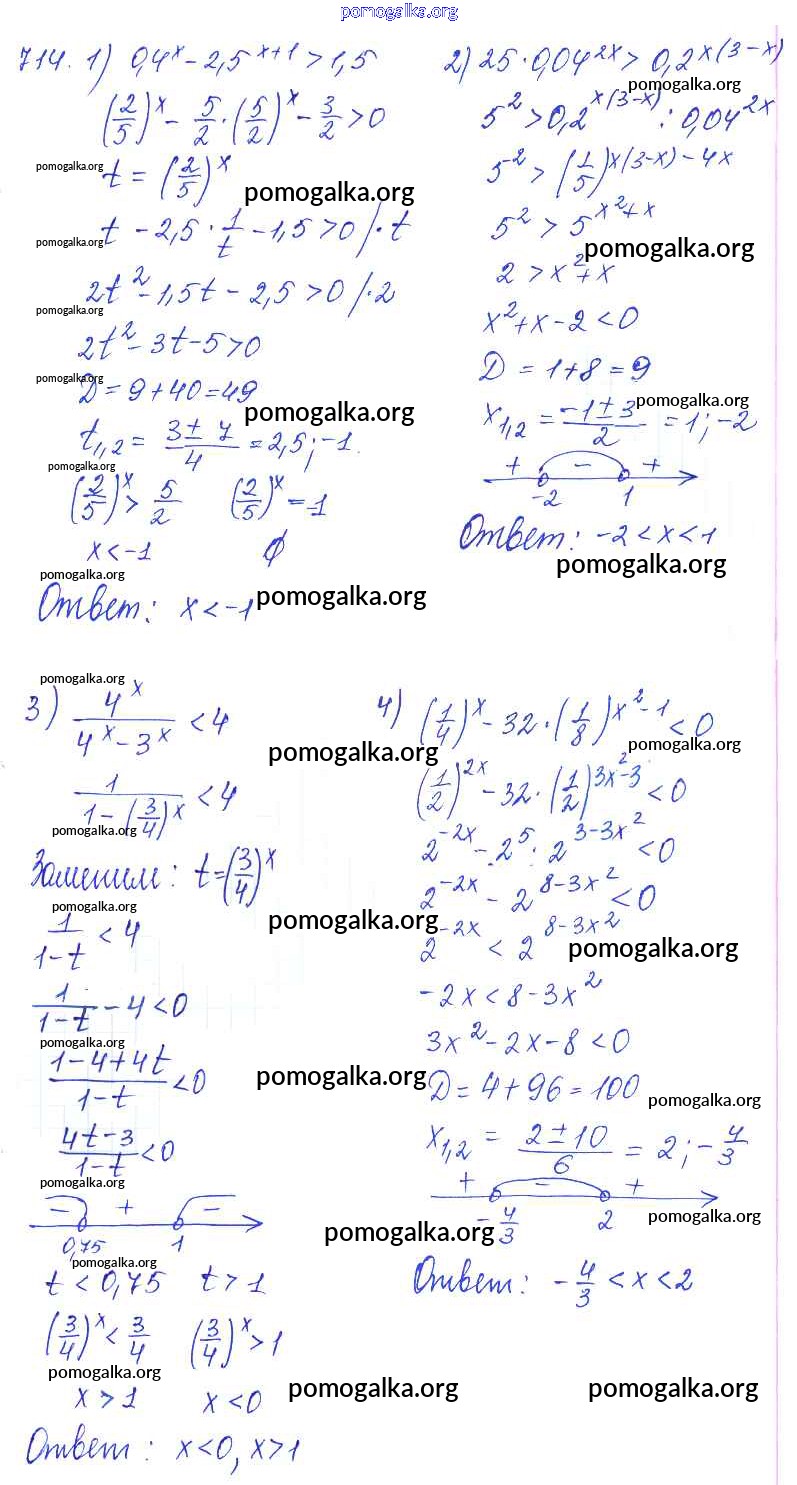 pomogalka.org
714. 1) 0,4^x - 2,5^{x+1} > 1,5
(2/5)^x - 5/2 · (5/2)^x - 3/2 > 0
pomogalka.org
t = (2/5)^x
pomogalka.org
t - 2,5 · 1/t - 1,5 > 0 /· t
pomogalka.org
2t^2 - 1,5t - 2,5 > 0 /· 2
pomogalka.org
2t^2 - 3t - 5 > 0
pomogalka.org
D = 9 + 40 = 49
pomogalka.org
t_{1,2} = (3 ± 7)/4 = 2,5; -1.
pomogalka.org
(2/5)^x > 5/2 (2/5)^x = -1
x < -1 ∅
pomogalka.org
Ответ: x < -1
pomogalka.org
2) 25 · 0,04^{2x} > 0,2^{x(3-x)}
pomogalka.org
5^2 > 0,2^{x(3-x)} : 0,04^{2x}
5^{-2} > (1/5)^{x(3-x) - 4x}
5^2 > 5^{x^2+x}
pomogalka.org
2 > x^2 + x
x^2 + x - 2 < 0
D = 1 + 8 = 9
pomogalka.org
x_{1,2} = (-1 ± 3)/2 = 1; -2
+ - +
-2 1
Ответ: -2 < x < 1
pomogalka.org
pomogalka.org
3) 4^x/(4^x - 3^x) < 4
pomogalka.org
1/(1 - (3/4)^x) < 4
pomogalka.org
Заменим: t = (3/4)^x
pomogalka.org
pomogalka.org
1/(1-t) < 4
1/(1-t) - 4 < 0
pomogalka.org
(1-4+4t)/(1-t) < 0
pomogalka.org
(4t-3)/(1-t) < 0
pomogalka.org
- + -
0,75 1
pomogalka.org
t < 0,75 t > 1
(3/4)^x < 3/4 (3/4)^x > 1
pomogalka.org
x > 1 x < 0
pomogalka.org
Ответ: x < 0, x > 1
4) (1/4)^x - 32 · (1/8)^{x^2-1} < 0
pomogalka.org
(1/2)^{2x} - 32 · (1/2)^{3x^2-3} < 0
2^{-2x} - 2^5 · 2^{3-3x^2} < 0
2^{-2x} - 2^{8-3x^2} < 0
2^{-2x} < 2^{8-3x^2}
pomogalka.org
-2x < 8 - 3x^2
3x^2 - 2x - 8 < 0
D = 4 + 96 = 100
pomogalka.org
x_{1,2} = (2 ± 10)/6 = 2; -4/3
+ - +
-4/3 2
pomogalka.org
pomogalka.org
Ответ: -4/3 < x < 2
pomogalka.org